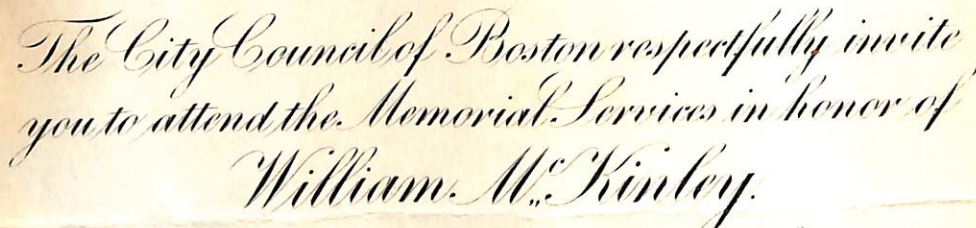 The City Council of Boston respectfully invite
you to attend the Memorial Services in honor of
William McKinley.